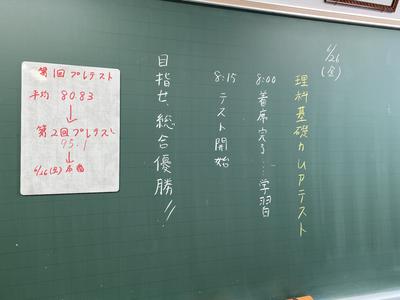 6/26
(金)
理科基礎力UPテスト
8:00 着席完了…学習
8:15 テスト開始
目指せ、総合優勝!!
第1回プレテスト
平均 80.83
↓
第2回プレテスト
95.1
↓